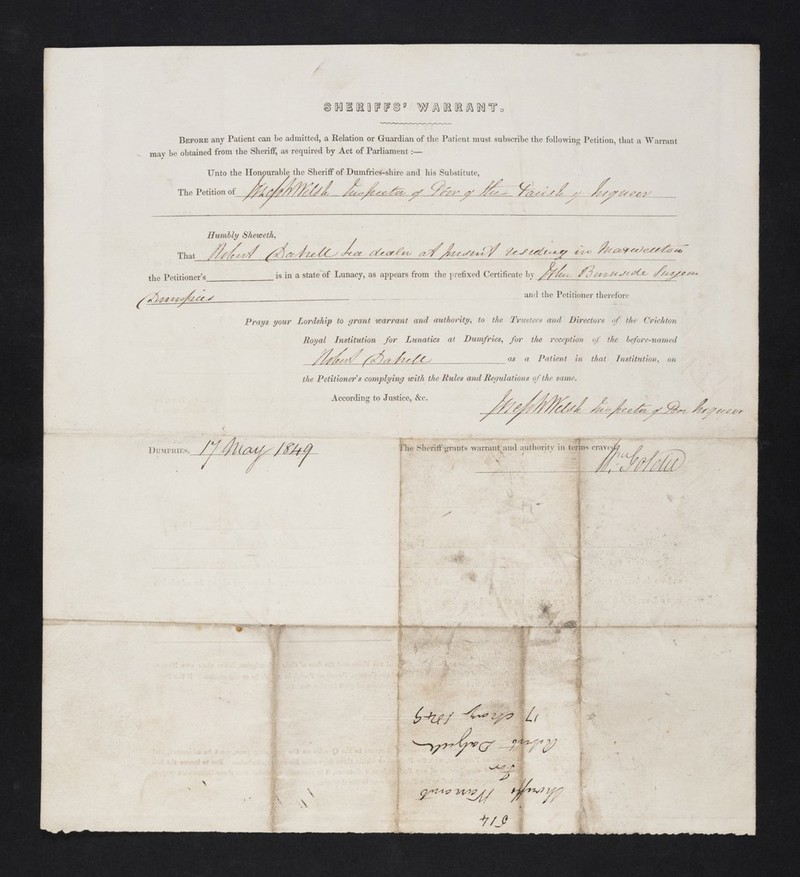 SHERIFFS' WARRANT.
BEFORE any Patient can be admitted, a Relation or Guardian of the Patient must subscribe the following Petition, that a Warrant
may be obtained from the Sheriff, as required by Act of Parliament :—
Unto the Honourable the Sheriff of Dumfries-shire and his Substitute,
The Petition of Joseph Welsh Inspector of Poor of the Parish of Troqueer
Humbly Sheweth,
That Robert Dalzell tea dealer at present residing in Maxwelltown
the Petitioner's is in a state of Lunacy, as appears from the prefixed Certificate by John Burnside Surgeon
Dumfries and the Petitioner therefore
Prays your Lordship to grant warrant and authority, to the Trustees and Directors of the Crichton
Royal Institution for Lunatics at Dumfries, for the reception of the before-named
Robert Dalzell as a Patient in that Institution, on
the Petitioner's complying with the Rules and Regulations of the same.
According to Justice, &c.
Joseph Welsh Inspector of Poor Troqueer
DUMFRIES, 17 May 1849 The Sheriff grants warrant and authority in terms craved.
514
Sheriffs Warrant
for
Robert Dalzell
17 May 1849